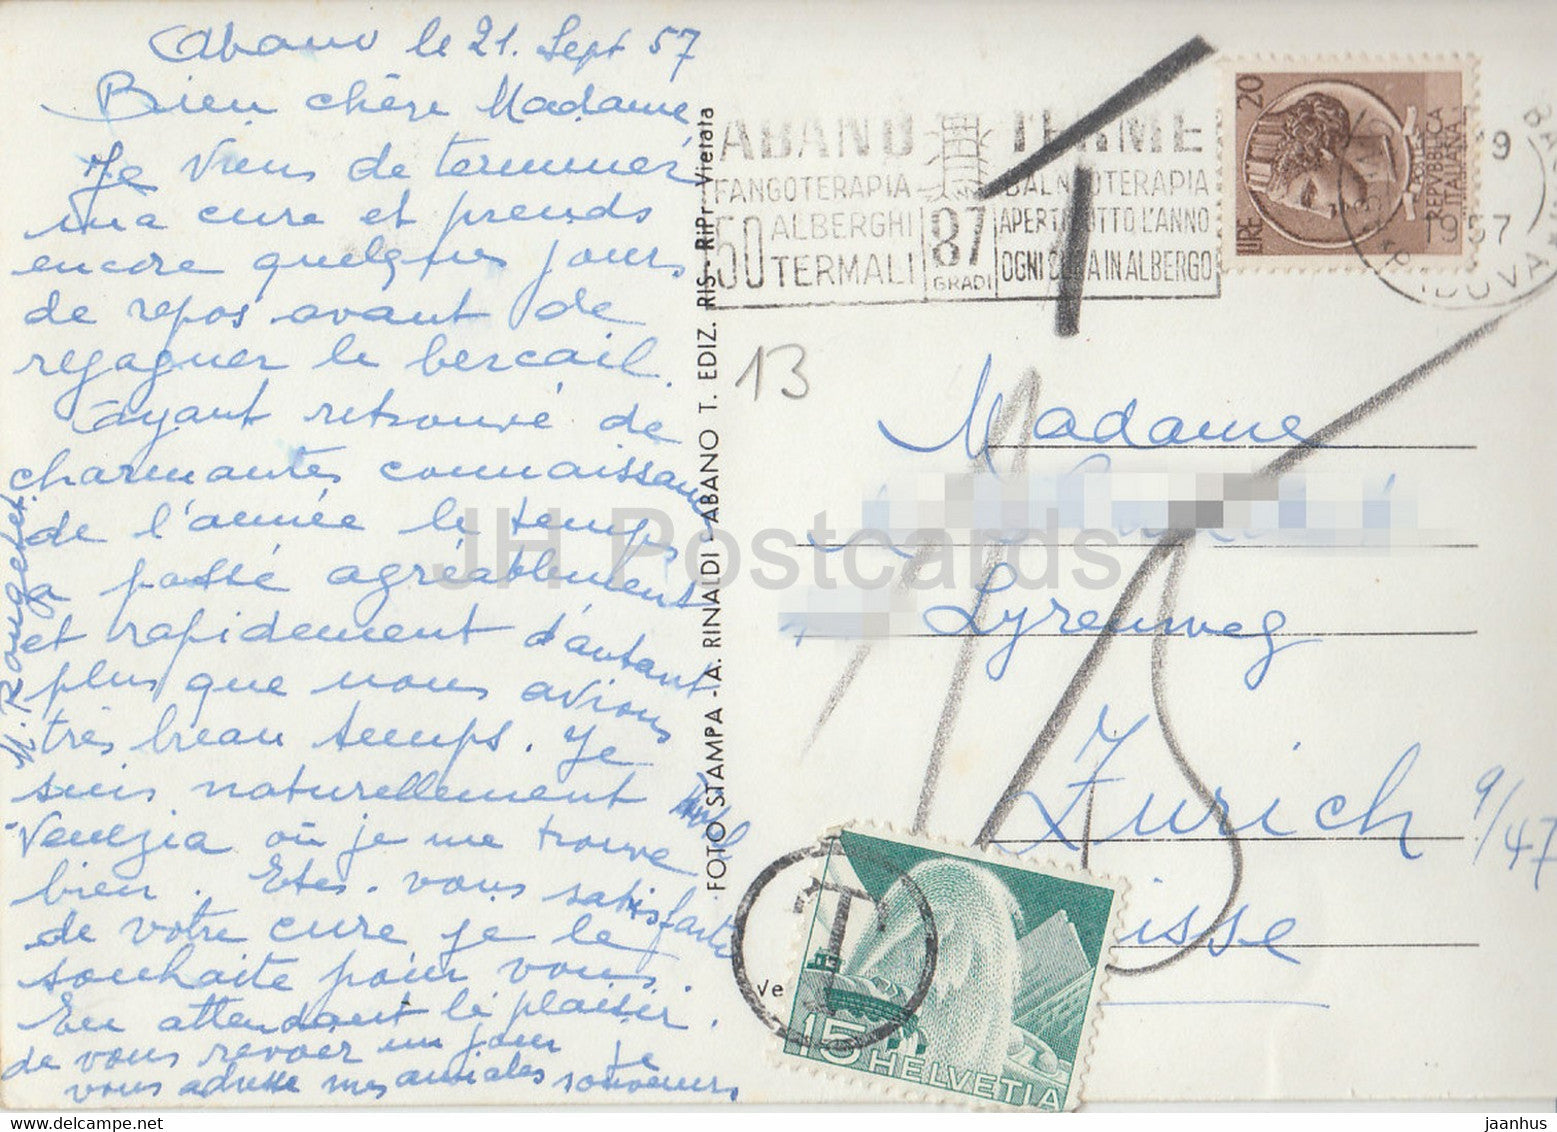 Abano le 21. Sept 57
Bien chère Madame
Je viens de terminer
ma cure et prends
encore quelques jours
de repos avant de
regagner le bercail.
Ayant retrouvé de
charmantes connaissances
de l'année le temps
a passé agréablement
et rapidement d'autant
plus que nous avions
très beau temps. Je
suis naturellement
Venezia où je me trouve
bien. Etes-vous satisfaite
de votre cure je le
souhaite pour vous.
En attendant le plaisir
de vous revoir un jour je
vous adresse mes amicales souvenirs
FOTO STAMPA - A. RINALDI - ABANO T. EDIZ. RIS- RiPr Vietata
ABANO TERME
FANGOTERAPIA BALNEOTERAPIA
50 ALBERGHI TERMALI
87 GRADI
APERTO TUTTO L'ANNO
OGNI CURA IN ALBERGO
LIRE 20
POSTE
REPVBBLICA
ITALIANA
9
1957
PADOVA
13
Madame
Lyrenweg
Zurich 9/47
Suisse
T
Ve
15 HELVETIA
JH Postcards
jaanhus